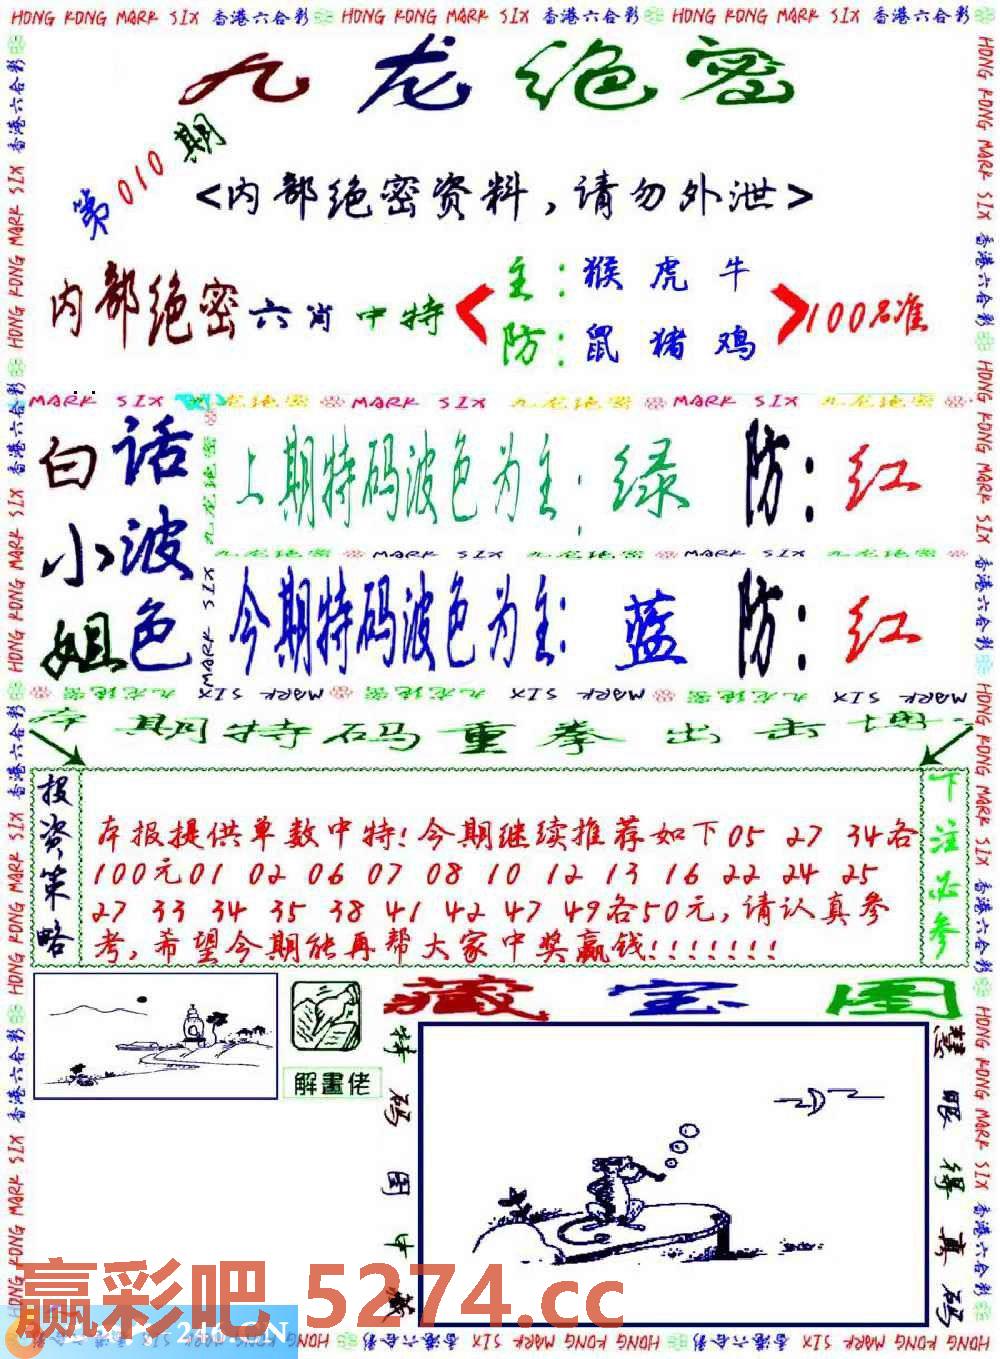 HONG KONG MARK SIX 香港六合彩 HONG KONG MARK SIX 香港六合彩 HONG KONG MARK SIX 香港六合彩
九龙绝密
第010期
<内部绝密资料，请勿外泄>
内部绝密六肖中特
主：猴 虎 牛
防：鼠 猪 鸡
100%准
MARK SIX 九龙绝密 MARK SIX 九龙绝密 MARK SIX 九龙绝密
白话
小波
姐色
上期特码波色为主：绿 防：红
九龙绝密 MARK SIX 九龙绝密 MARK SIX 九龙绝密
今期特码波色为主：蓝 防：红
本期特码重拳出击
投资策略
本报提供单数中特！今期继续推荐如下05 27 34各
100元01 02 06 07 08 10 12 13 16 22 24 25
27 33 34 35 38 41 42 47 49各50元，请认真参
考，希望今期能再帮大家中奖赢钱！！！！！！！
下注必参
解畫佬
藏宝图
特码图中藏
慧眼得真码
赢彩吧 5274.cc
246